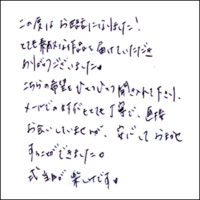 この度はお世話になりました!
とても素敵な作品を届けていただき
ありがとうございました。
こちらの希望もひとつひとつ聞いて下さり、
メールでの対応もとても丁寧で、直接
お会いしていませんが、安心してお任せ
することができました。
式当日が楽しみです。